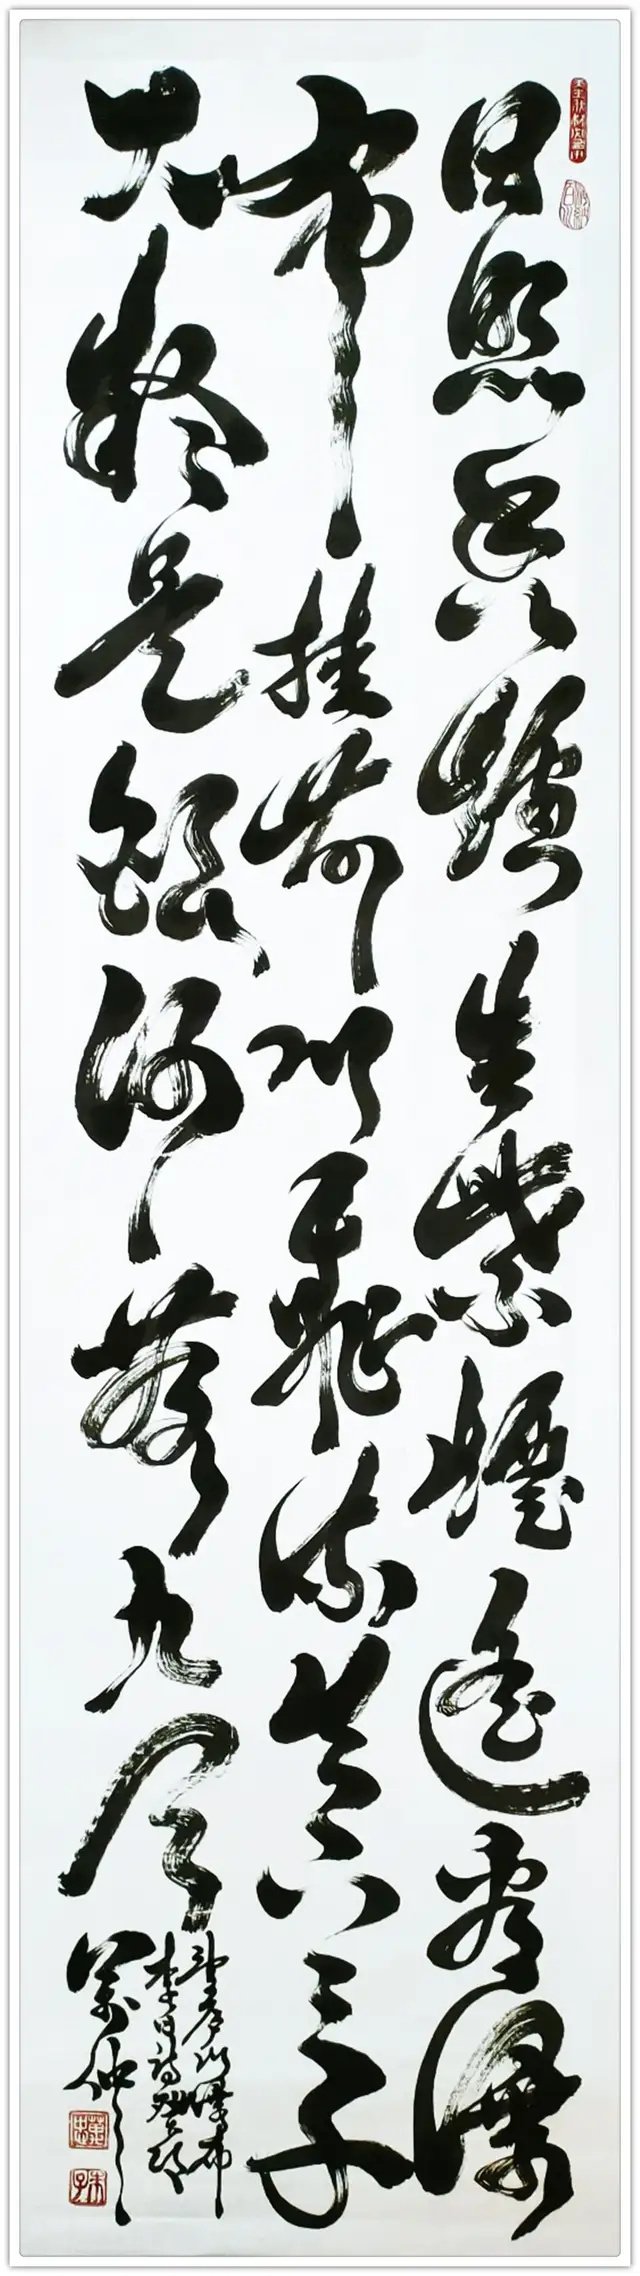 日照香爐生紫煙遙看瀑
布挂前川飛流直下三千
尺疑是銀河落九天
望廬山瀑布
李白詩